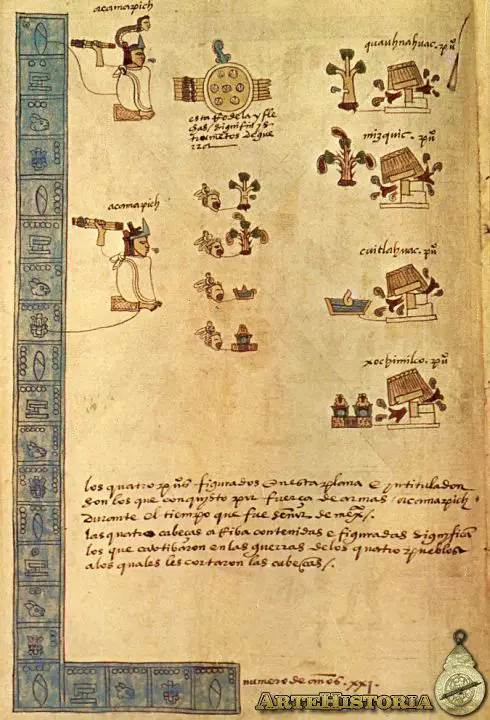 acamapich
quauhnahuac. pu
esta Rodela y fle
chas / significā yns
trumētos de gue
rra
mizquic. pu
acamapich
cuitlahuac. pu
xochimilco. pu
los quatro pus figurados en esta plana e yntitulados
son los que conquisto por fuerça de armas / acamapich
durante el tiempo que fue señor de mexco /.
las quatro cabeças aRiba contenidas e figuradas significā
los que cautibaron en las guerras de los quatro pueblos
a los quales les cortaron las cabeças /.
numero de años. xxi.
ARTEHISTORIA